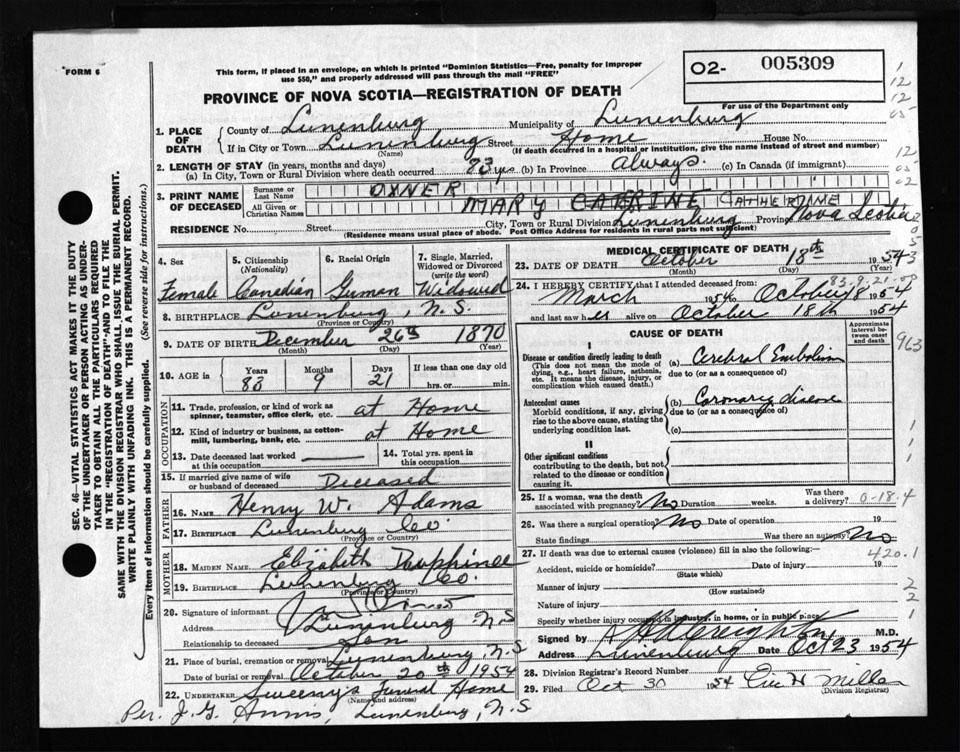 FORM 6
This form, if placed in an envelope, on which is printed "Dominion Statistics—Free, penalty for improper
use $50," and properly addressed will pass through the mail "FREE"
O2- 005309
For use of the Department only
PROVINCE OF NOVA SCOTIA—REGISTRATION OF DEATH
1. PLACE OF DEATH
County of Lunenburg Municipality of Lunenburg
If in City or Town Lunenburg Street Home House No.
(Name) (If death occurred in a hospital or institution, give the name instead of street and number)
2. LENGTH OF STAY (in years, months and days)
(a) In City, Town or Rural Division where death occurred 83 yrs (b) In Province always. (c) In Canada (if immigrant)
3. PRINT NAME OF DECEASED
Surname or Last Name OXNER
All Given or Christian Names MARY CATRINE CATHERINE
RESIDENCE No. Street City, Town or Rural Division Lunenburg Province Nova Scotia
(Residence means usual place of abode. Post Office Address for residents in rural parts not sufficient)
SEC. 46—VITAL STATISTICS ACT MAKES IT THE DUTY
OF THE UNDERTAKER OR PERSON ACTING AS UNDER-
TAKER TO OBTAIN ALL THE PARTICULARS REQUIRED
IN THE "REGISTRATION OF DEATH" AND TO FILE THE
SAME WITH THE DIVISION REGISTRAR WHO SHALL ISSUE THE BURIAL PERMIT.
WRITE PLAINLY WITH UNFADING INK. THIS IS A PERMANENT RECORD.
Every item of information should be carefully supplied. (See reverse side for instructions.)
4. Sex
Female
5. Citizenship
(Nationality)
Canadian
6. Racial Origin
German
7. Single, Married,
Widowed or Divorced
(write the word)
Widowed
8. BIRTHPLACE Lunenburg, N.S.
(Province or Country)
9. DATE OF BIRTH December 26th 1870
(Month) (Day) (Year)
10. AGE in Years 83 Months 9 Days 21 If less than one day old
hrs. or min.
OCCUPATION
11. Trade, profession, or kind of work as
spinner, teamster, office clerk, etc. at Home
12. Kind of industry or business, as cotton-
mill, lumbering, bank, etc. at Home
13. Date deceased last worked
at this occupation
14. Total yrs. spent in
this occupation
15. If married give name of wife
or husband of deceased Deceased
FATHER
16. NAME Henry W. Adams
17. BIRTHPLACE Lunenburg Co
(Province or Country)
MOTHER
18. MAIDEN NAME Elizabeth Dauphinee
19. BIRTHPLACE Lunenburg Co.
(Province or Country)
20. Signature of informant
Address Lunenburg N.S
Relationship to deceased Son
21. Place of burial, cremation or removal Lunenburg, N.S
Date of burial or removal October 20th 1954
22. UNDERTAKER Sweeny's Funeral Home
(Name and address)
Per. J. G. Lunenburg, N.S
MEDICAL CERTIFICATE OF DEATH
23. DATE OF DEATH October 18th 1954
(Month) (Day) (Year)
24. I HEREBY CERTIFY that I attended deceased from:
March 1954 to October 18 1954
and last saw her alive on October 18th 1954
CAUSE OF DEATH
Approximate
interval be-
tween onset
and death
I
Disease or condition directly leading to death
(This does not mean the mode of
dying, e.g., heart failure, asthenia,
etc. It means the disease, injury, or
complication which caused death.)
(a) Cerebral Embolism
due to (or as a consequence of)
Antecedent causes
Morbid conditions, if any, giving
rise to the above cause, stating the
underlying condition last.
(b) Coronary Disease
due to (or as a consequence of)
(c)
II
Other significant conditions
contributing to the death, but not
related to the disease or condition
causing it.
25. If a woman, was the death
associated with pregnancy? No Duration weeks. Was there
a delivery?
0-18.4
26. Was there a surgical operation? No Date of operation 19
State findings Was there an autopsy? No
27. If death was due to external causes (violence) fill in also the following:—
420.1
Accident, suicide or homicide? Date of injury 19
(State which)
Manner of injury
(How sustained)
Nature of injury
Specify whether injury occurred in industry, in home, or in public place
Signed by Creighton M.D.
Address Lunenburg Date Oct 23 1954
28. Division Registrar's Record Number
29. Filed Oct 30 1954
(Division Registrar)